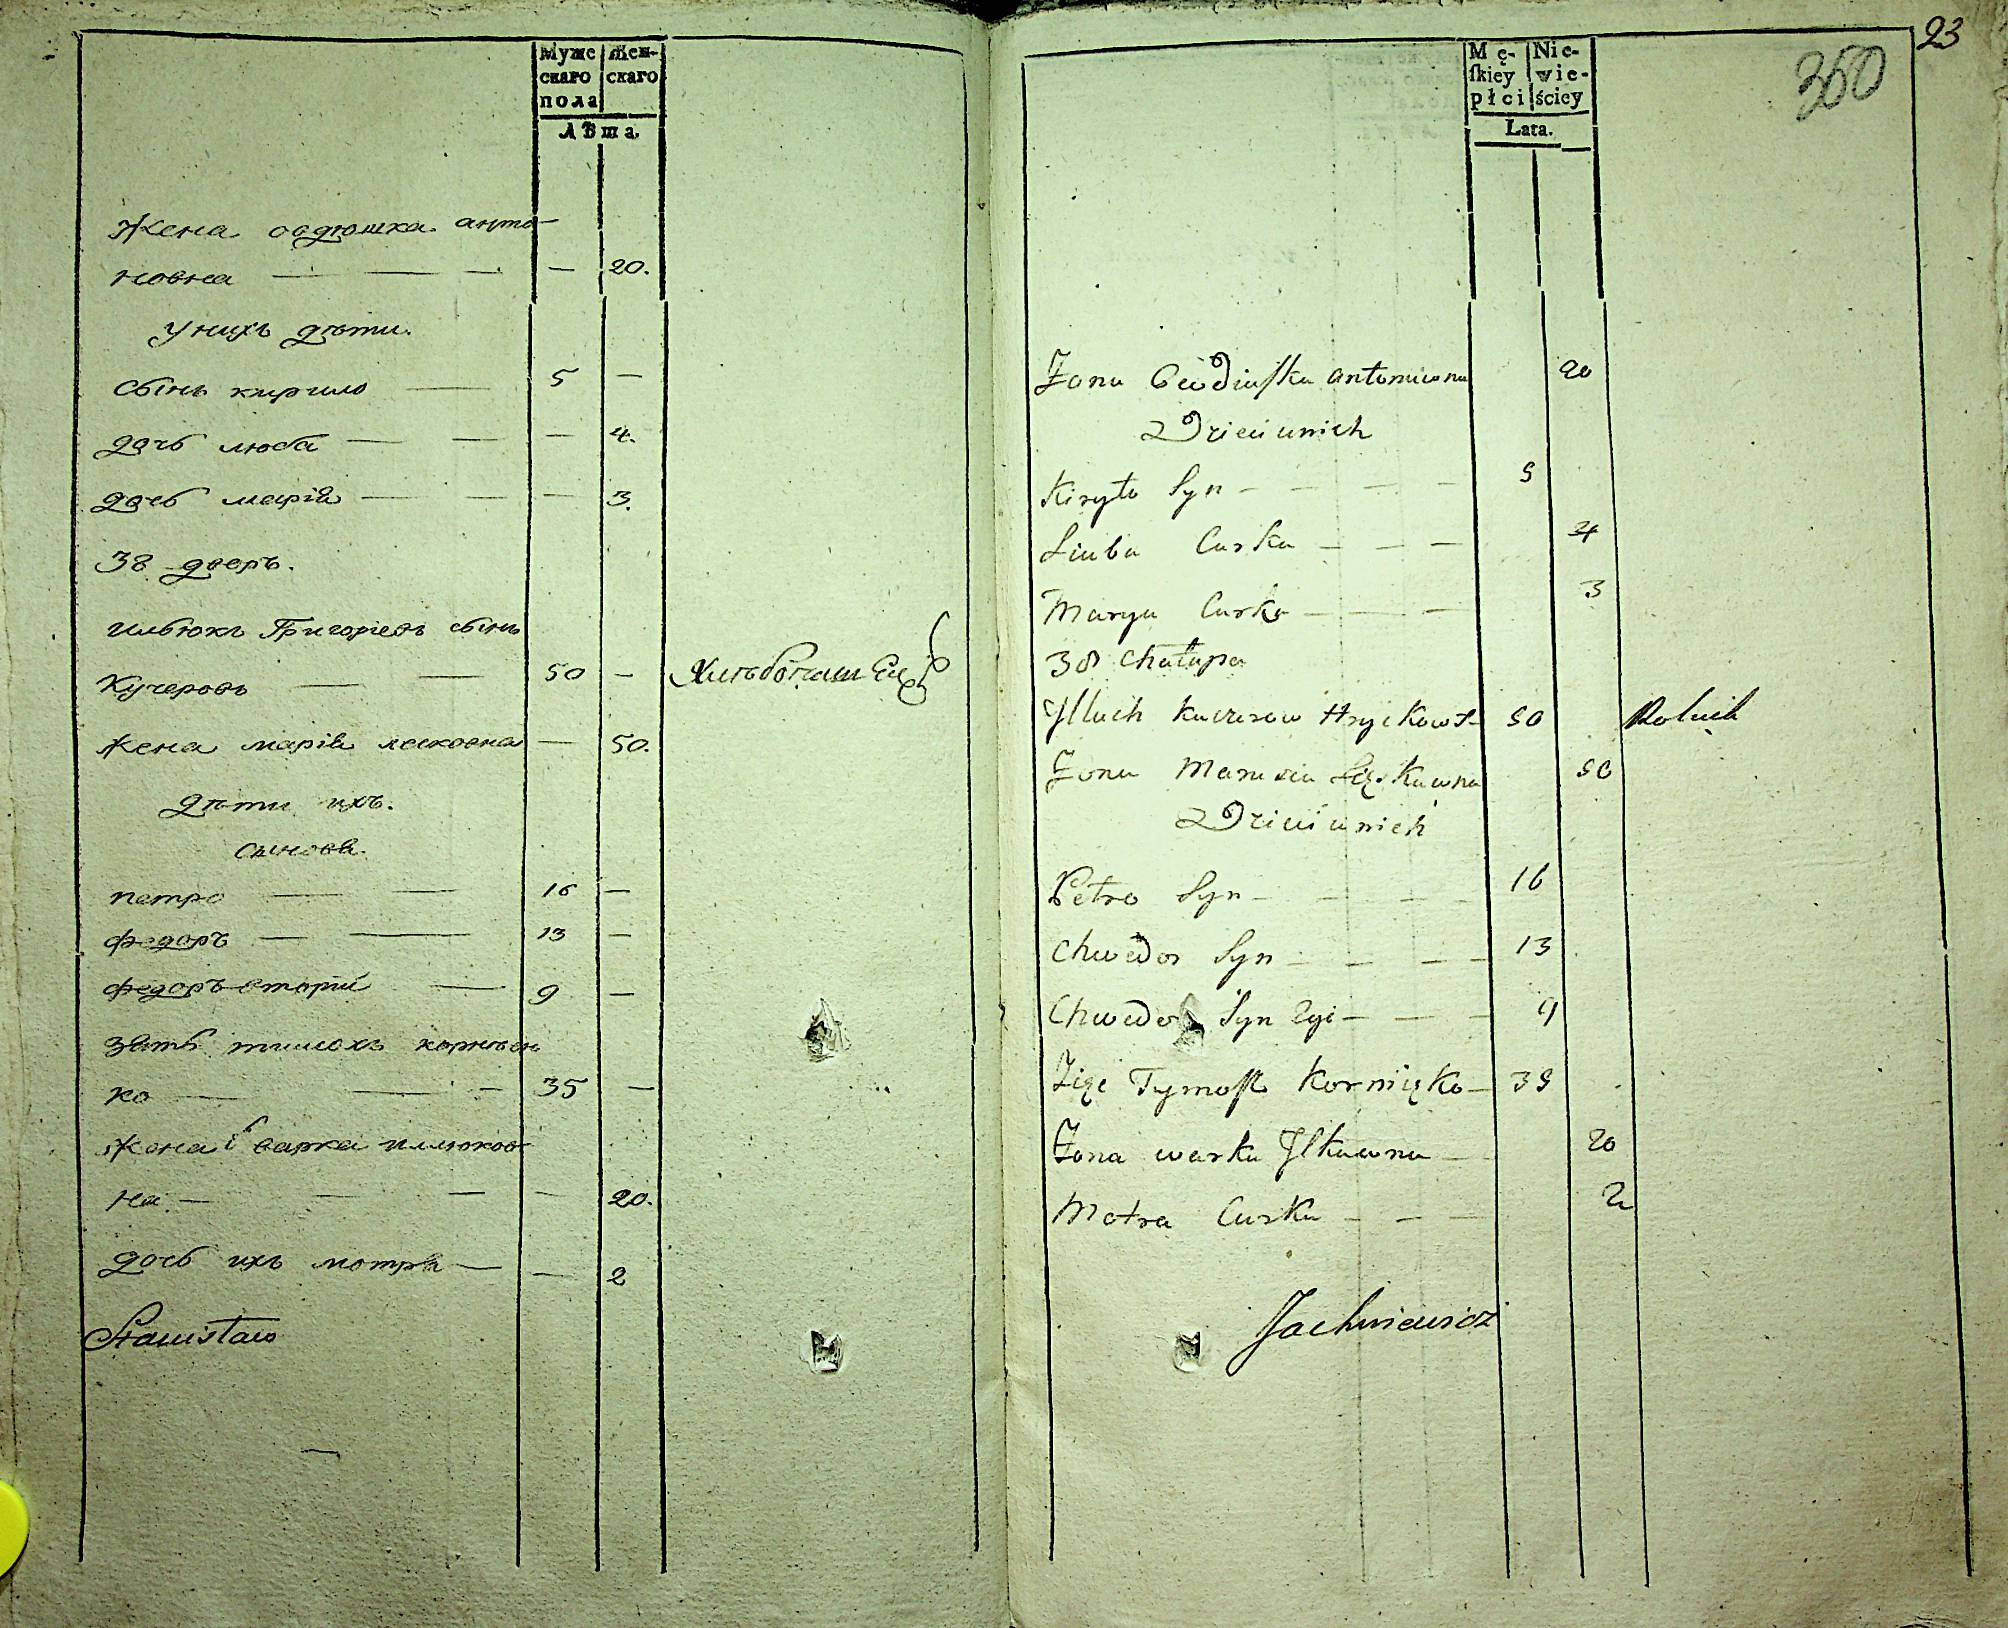 Муже Жен-
скаго скаго
пола
Лѣта.
Жена овдюшка анто-
новна — — — — 20.
У нихъ дѣти.
сынъ кирило — 5 —
дочь люба — — — 4.
дочь марія — — — 3.
38 дворъ.
Ильюкъ Григоріевъ сынъ
Кучеровъ — — 50 —
жена марія леcковна — 50.
Дѣти ихъ.
сыновя.
петро — — 16 —
федоръ — — 13 —
федоръ вторій — 9 —
зять тимохъ корнѣен
ко — — — 35 —
Жена ī варка иллюков
на — — — — 20.
дочь ихъ мотря — — 2
Stanisław
23
350
Mę- Nie-
ſkiey wie-
płci ściey
Lata.
Żona Owdiuſka antoniwna 20
Dzieci u nich
Kiryło Syn — — — — 5
Liuba Curka — — — 4
Marya Curka — — — 3
38 Chałupa
Jlluch Kuczerow Hryckow S. 50 Rolnik
Żona Marusia Lięskuwna 50
Dzieci u nich
Petro Syn — — — — 16
Chwedor Syn — — — — 13
Chwedor Syn 2gi — — — 9
Zięc Tymoſz Kornięko — 35
Żona warka Jlkuwna — 20
Motra Curka — — — 2
Jachniewicz